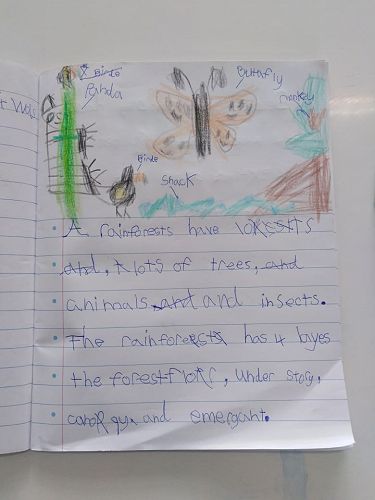 Birde
Panda
Buttafly
monkey
Birde
Snack
A rainforests have
and, A lots of trees, and
animals and and insects.
The rainforests has 4 layes
the forest floor, under story,
and emergant.